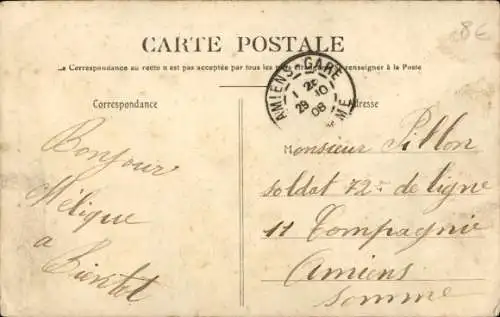 8€
CARTE POSTALE
La Correspondance au recto n'est pas acceptée par tous les pays renseigner à la Poste
AMIENS-GARE
1 25
29 10
08
ME
Correspondance
Adresse
Bonjour
Mélique
a
Bientot
Monsieur Pillon
soldat 72e de ligne
11 Compagnie
Amiens
Somme